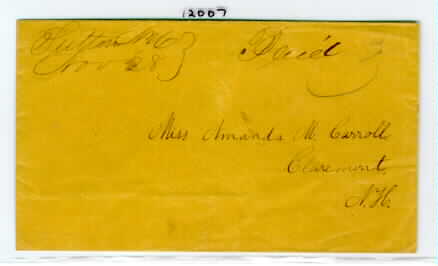 12007
Sutton
Nov 28
Paid 3
Miss Amanda M. Carroll
Claremont,
N.H.